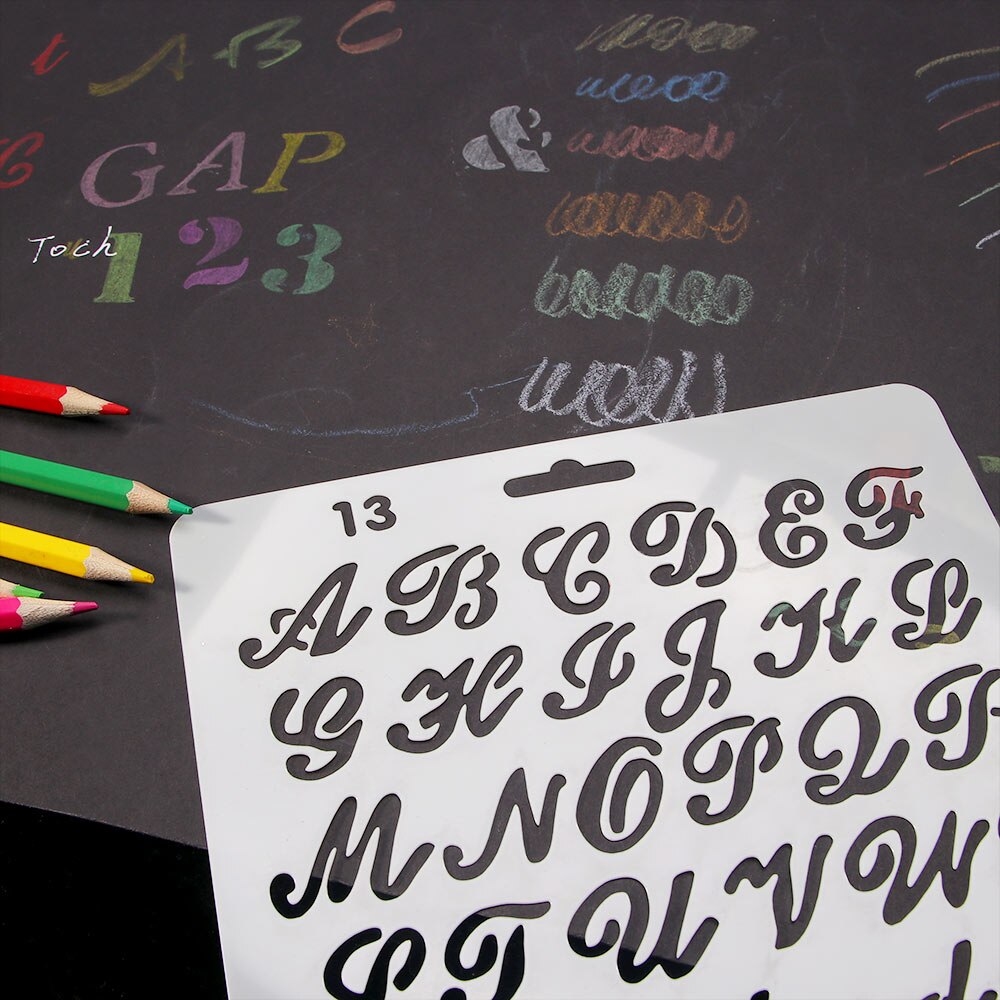 t A B C
&
GAP
Toch 123
13
A B C D E F
G H I J K L
M N O P Q R
S T U V W